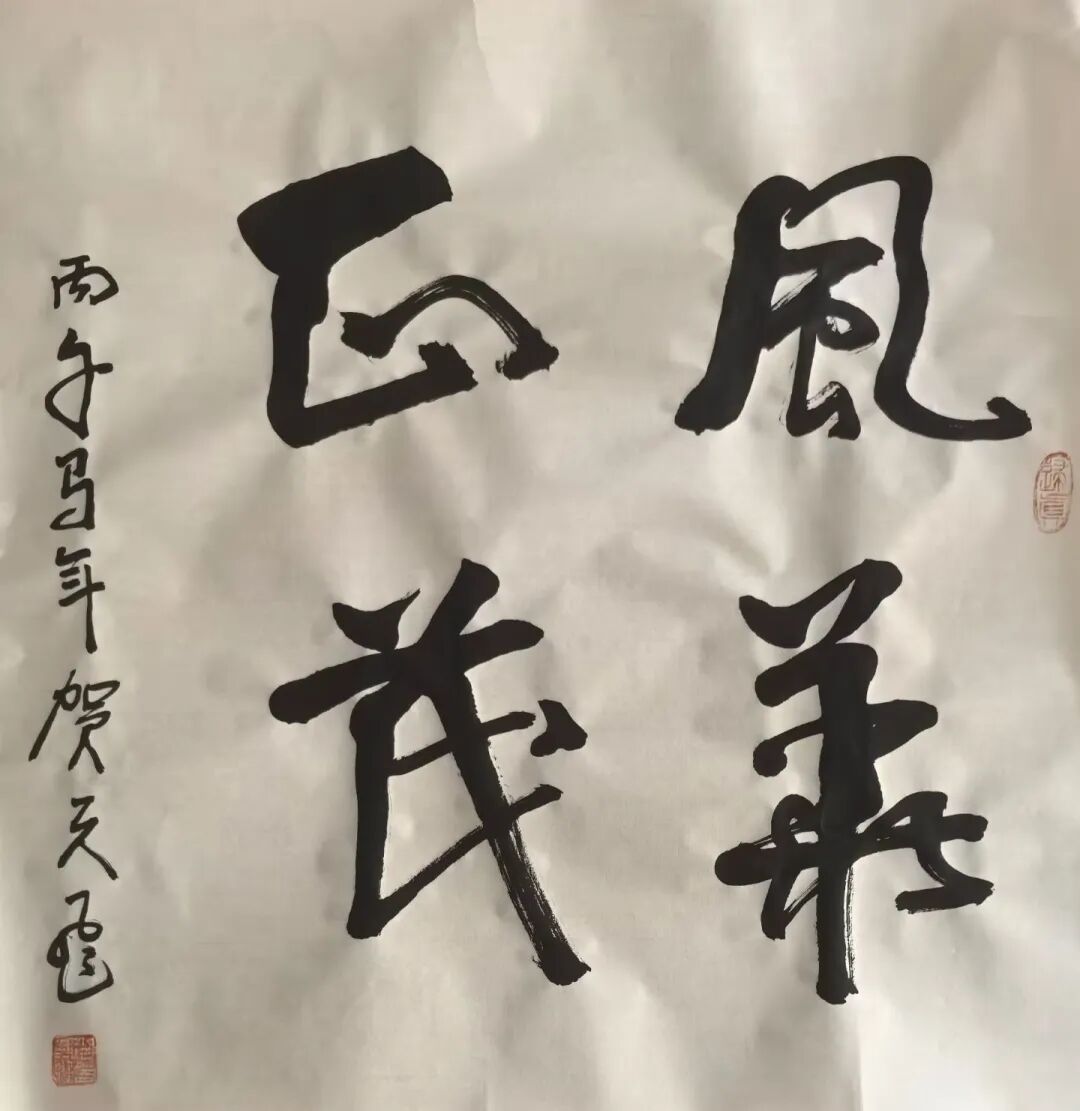 風華
正茂
丙午马年贺天